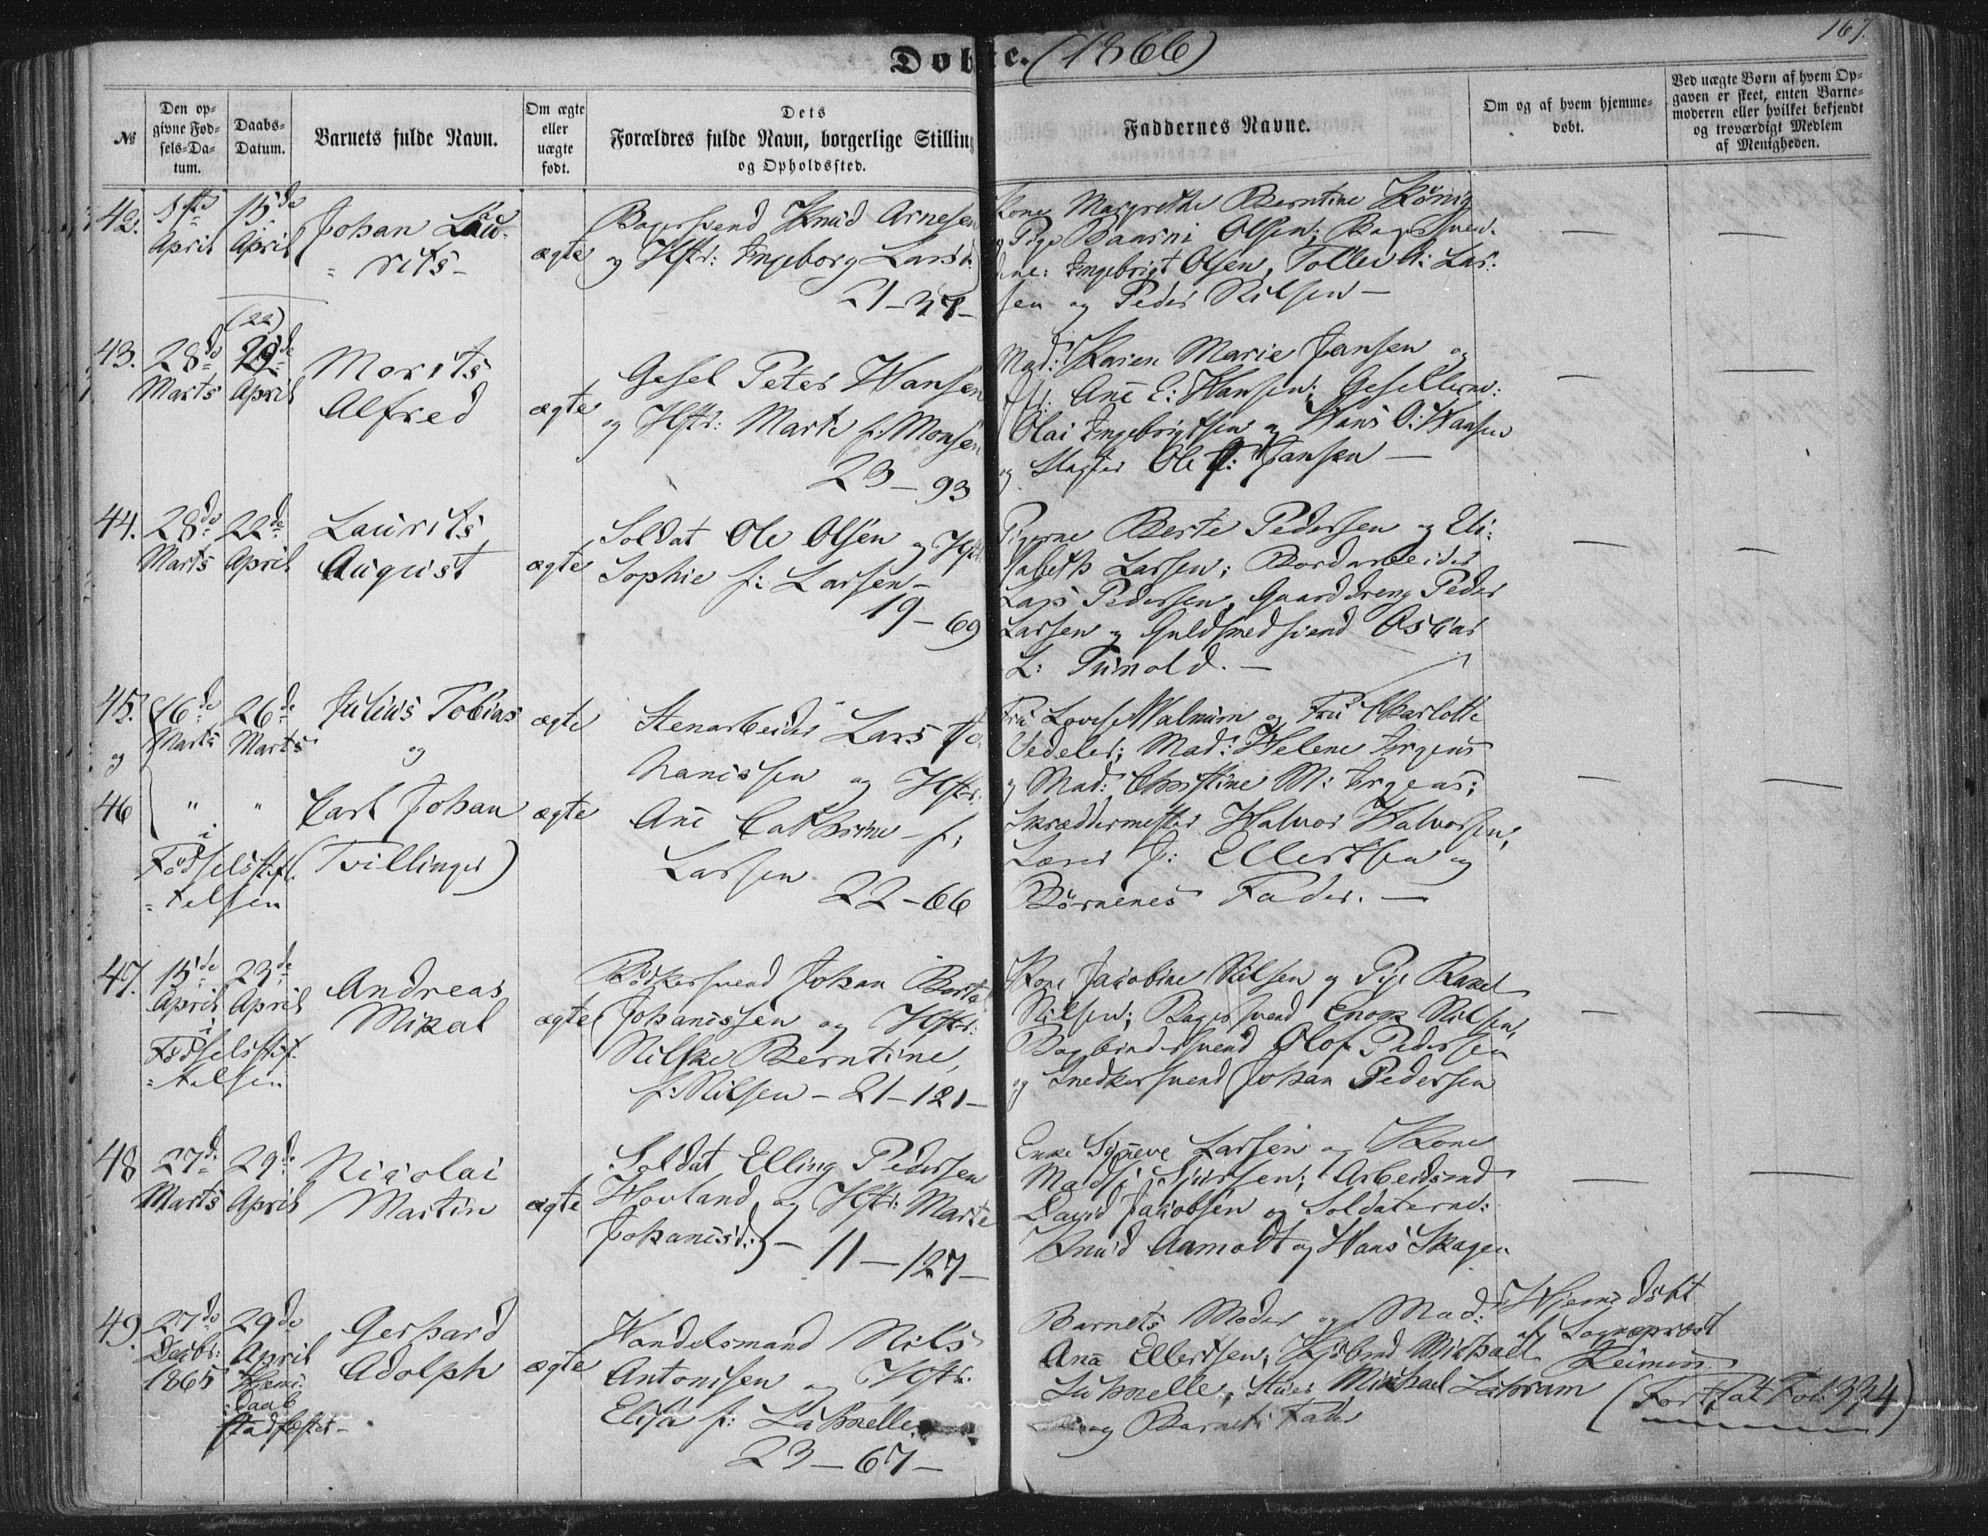 167.
Døbte. (1866)
№
Den opgivne Fødsels-Datum.
Daabs-Datum.
Barnets fulde Navn.
Om ægte eller uægte født.
Dets Forældres fulde Navn, borgerlige Stilling og Opholdssted.
Faddernes Navne.
Om og af hvem hjemmedøbt.
Ved uægte Børn af hvem Opgaven er skeet, enten Barnemoderen eller hvilket bekjendt og troværdigt Medlem af Menigheden.
42.
April
15de April
Johan Lau-
rits
ægte
Bagersvend Knud Arnesen
og Hstr: Ingeborg Larsd:
21-37-
Kone Margrethe Berntine König
og Pige Baarni Olsen; Bagersvend-
ene: Ingebrigt Olsen, Tollev A: Lar-
sen og Peder Nilsen —
43.
28de Marts
(22)
29de April
Morits
Alfred
ægte
Gesel Peter Hansen
og Hstr: Marte f: Monsen
23-93
Mad: Karen Marie Jansen og
Ane E: Hansen; Gesellerne:
Olai Ingebrigtsen og Hans O: Hansen
og Slagter Ole Jansen —
44.
28de Marts
22de April
Laurits
August
ægte
Soldat Ole Olsen og Hstr:
Sophie f: Larsen-
19-69
Pigerne Berte Pedersen og Eli-
sabeth Larsen; Bordarbeider
Lars Pedersen, Gaarddreng Peder
Larsen og Guldsmedsvend Oskar
L: Tunold. —
45.
og
46
16de Marts
26de Marts
Julius Tobias
og
Carl Johan
(Tvillinger)
ægte
ægte
i
Fødselsstif-
telsen
Stenarbeider Lars Jo-
hanissen og Hstr:
Ane Cathrine f:
Larsen
22-66
Fru Lovise Walnum og Fru Charlotte
Vedeler; Mad: Helene Irgens
og Mad: Christine M: Irgens;
Skræddermester Halvor Halvorsen,
Lærer J: Ellertsen og
Børnenes Fader. —
47.
15de April
23de April
i
Fødselsstif-
telsen
Andreas
Mikal
ægte
Bødkersvend Johan
Johanissen og Hstr:
Nilske Berntine,
f: Nilsen - 21-121-
Kone Jacobine Nilsen og Pige Rakel
Nilsen; Bagersvend Enok Nilsen,
Bogbindersvend Olof Pedersen
og Snedkersvend Johan Pedersen
48
27de Marts
29de April
Nicolai
Martin
ægte
Soldat Elling Pedersen
Hovland og Hstr: Marte
Johanisd: - 11-127-
Enke Synneve Larsen og Kone
Madsi Siursen; Arbeidsmd
David Jacobsen og Soldaterne:
Knud Aamodt og Hans Skagen
49.
27de Decbr: 1865
29de April
Hjemme-
Daab
stadfæstet-
Gerhard
Adolph
ægte
Handelsmand Nils
Antonisen og Hstr:
Elisa f: Lühnelle
23-67-
Barnets Moder og Mad:
Ane Ellertsen; Michael
Lühnelle, Michael
og Barnets Fader
Hjemmedøbt
af Sogneprest
Reimers
(Fortsat Fol: 334)